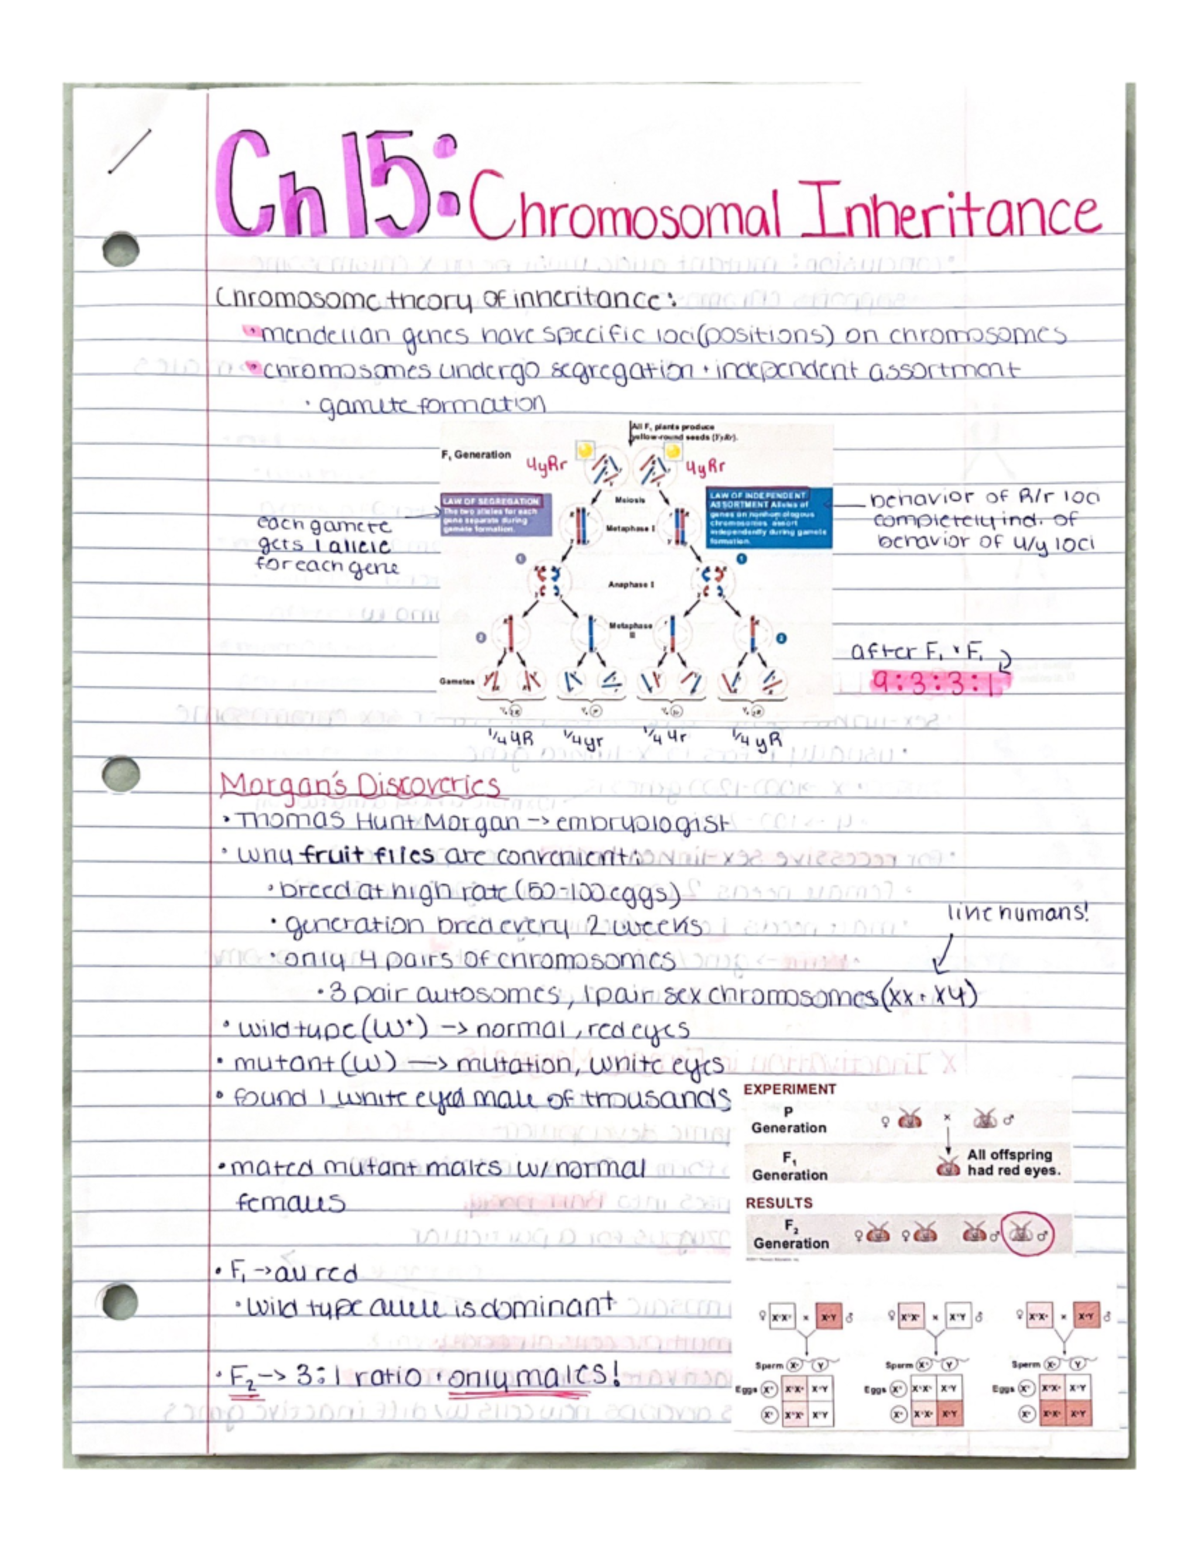 Ch 15: Chromosomal Inheritance
Chromosome theory of inheritance:
• mendelian genes have specific loci (positions) on chromosomes
• chromosomes undergo segregation + independent assortment
• gamete formation
All F₁ plants produce
yellow-round seeds (YyRr).
F₁ Generation
YyRr
YyRr
LAW OF SEGREGATION
The two alleles for each
gene separate during
gamete formation.
Meiosis
LAW OF INDEPENDENT
ASSORTMENT Alleles of
genes on nonhomologous
chromosomes assort
independently during gamete
formation.
each gamete
gets 1 allele
for each gene
behavior of R/r loci
completely ind. of
behavior of Y/y loci
Metaphase I
1
1
Anaphase I
Metaphase
II
2
2
Gametes
after F₁ × F₁
9:3:3:1
1/4 YR
1/4 yr
1/4 Yr
1/4 yR
Morgan's Discoveries
• Thomas Hunt Morgan → embryologist
• why fruit flies are convenient:
• breed at high rate (50-100 eggs)
• generation bred every 2 weeks
• only 4 pairs of chromosomes
like humans!
• 3 pair autosomes, 1 pair sex chromosomes (XX + XY)
• wild type (W⁺) → normal, red eyes
• mutant (W) → mutation, white eyes
• found 1 white eyed male of thousands
EXPERIMENT
P
Generation
♀ × ♂
F₁
Generation
All offspring
had red eyes.
RESULTS
F₂
Generation
♀ ♀ ♂ ♂
• mated mutant males w/ normal
females
• F₁ → all red
• wild type allele is dominant
• F₂ → 3:1 ratio • only males!
Sperm
Sperm
Sperm
Eggs
Eggs
Eggs